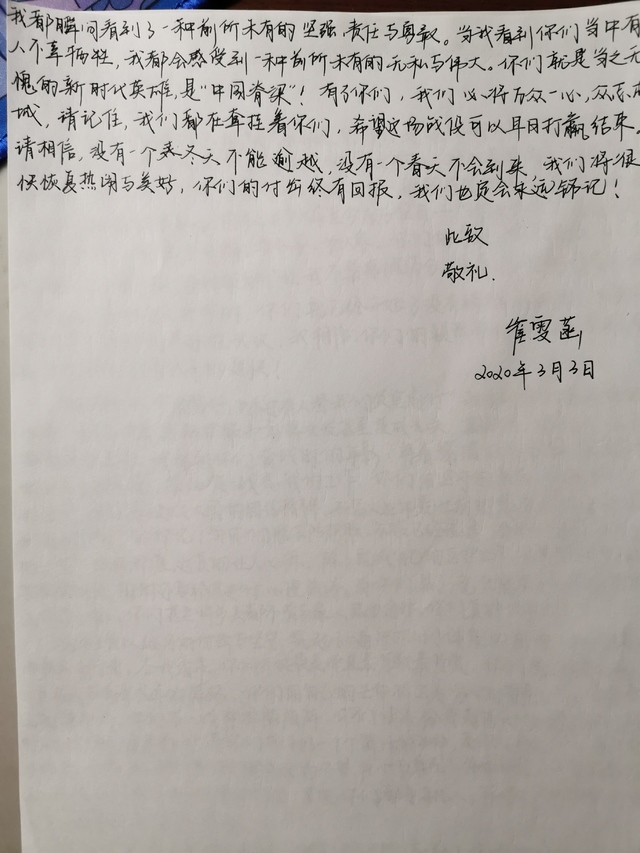 我都瞬间看到了一种前所未有的坚强、责任与勇敢。当我看到你们当中有
人不幸牺牲，我都会感受到一种前所未有的无私与伟大。你们就是当之无
愧的新时代英雄，是“中国脊梁”！有了你们，我们必将万众一心，众志成
城，请记住，我们都在牵挂着你们，希望这场战役可以早日打赢结束。
请相信，没有一个寒冬天不能逾越，没有一个春天不会到来，我们将很
快恢复热闹与美好，你们的付出终有回报，我们也定会永远铭记！
此致
敬礼.
崔雯菡
2020年3月3日